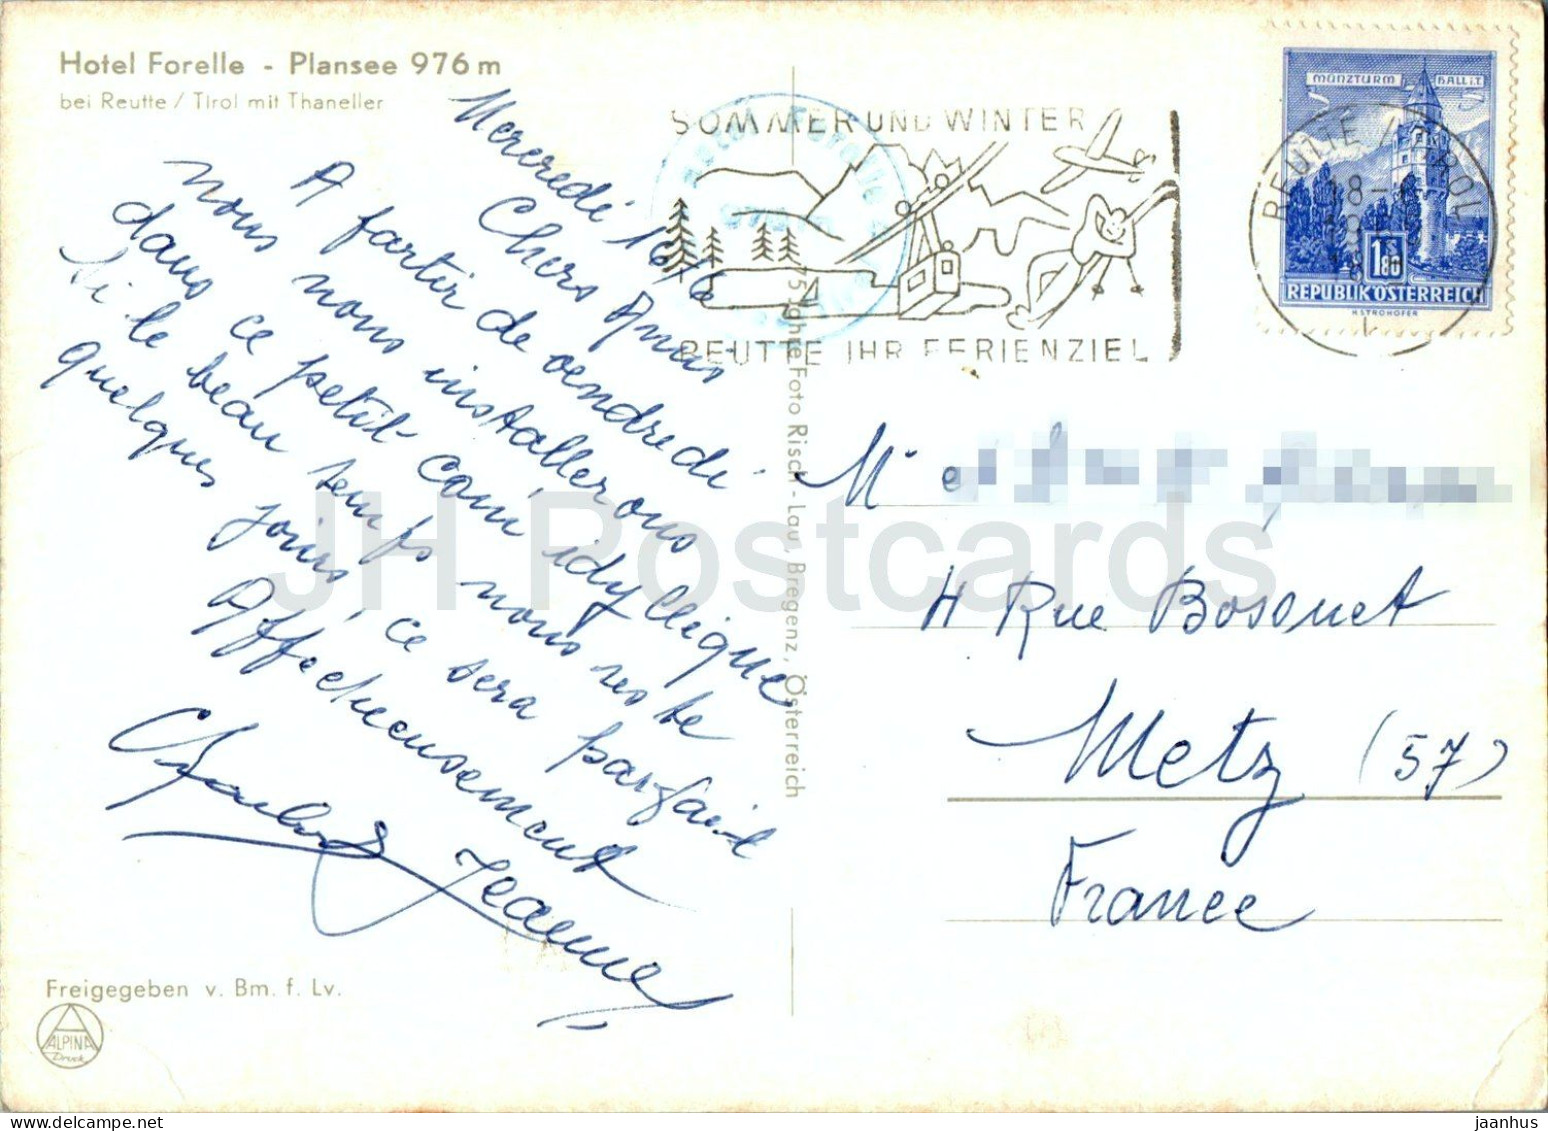 Hotel Forelle - Plansee 976 m
bei Reutte / Tirol mit Thaneller
Mercredi 16/6
Chers Amis
A partir de vendredi
nous nous installerons
dans ce petit coin idyllique
Si le beau temps nous reste
quelques jours, ce sera parfait
Affectueusement
Charles Jeanne
Freigegeben v. Bm. f. Lv.
ALPINA
Druck
75 Jahre Foto Risch - Lau, Bregenz, Österreich
SOMMER UND WINTER
REUTTE IHR FERIENZIEL
REUTTE / TIROL
18-
MÜNZTURM HALL i.T.
S
1.80
REPUBLIK ÖSTERREICH
H. STROHOFER
Mr et
4 Rue Bossuet
Metz (57)
France
JH Postcards
jaanhus delcampe.net